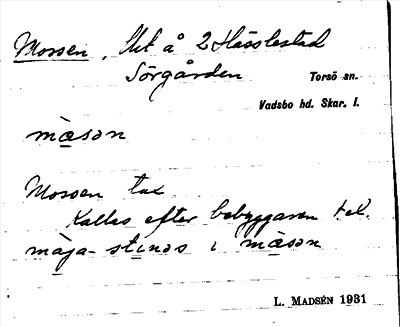 Mossen, lht å 2 Hasslestad
Sörgården Torsö sn.
Vadsbo hd. Skar. l.
mǫsən
Mossen tax
Kallas efter bebyggaren t.ex.
maja-stinas i mǫsən
L. MADSÉN 1931